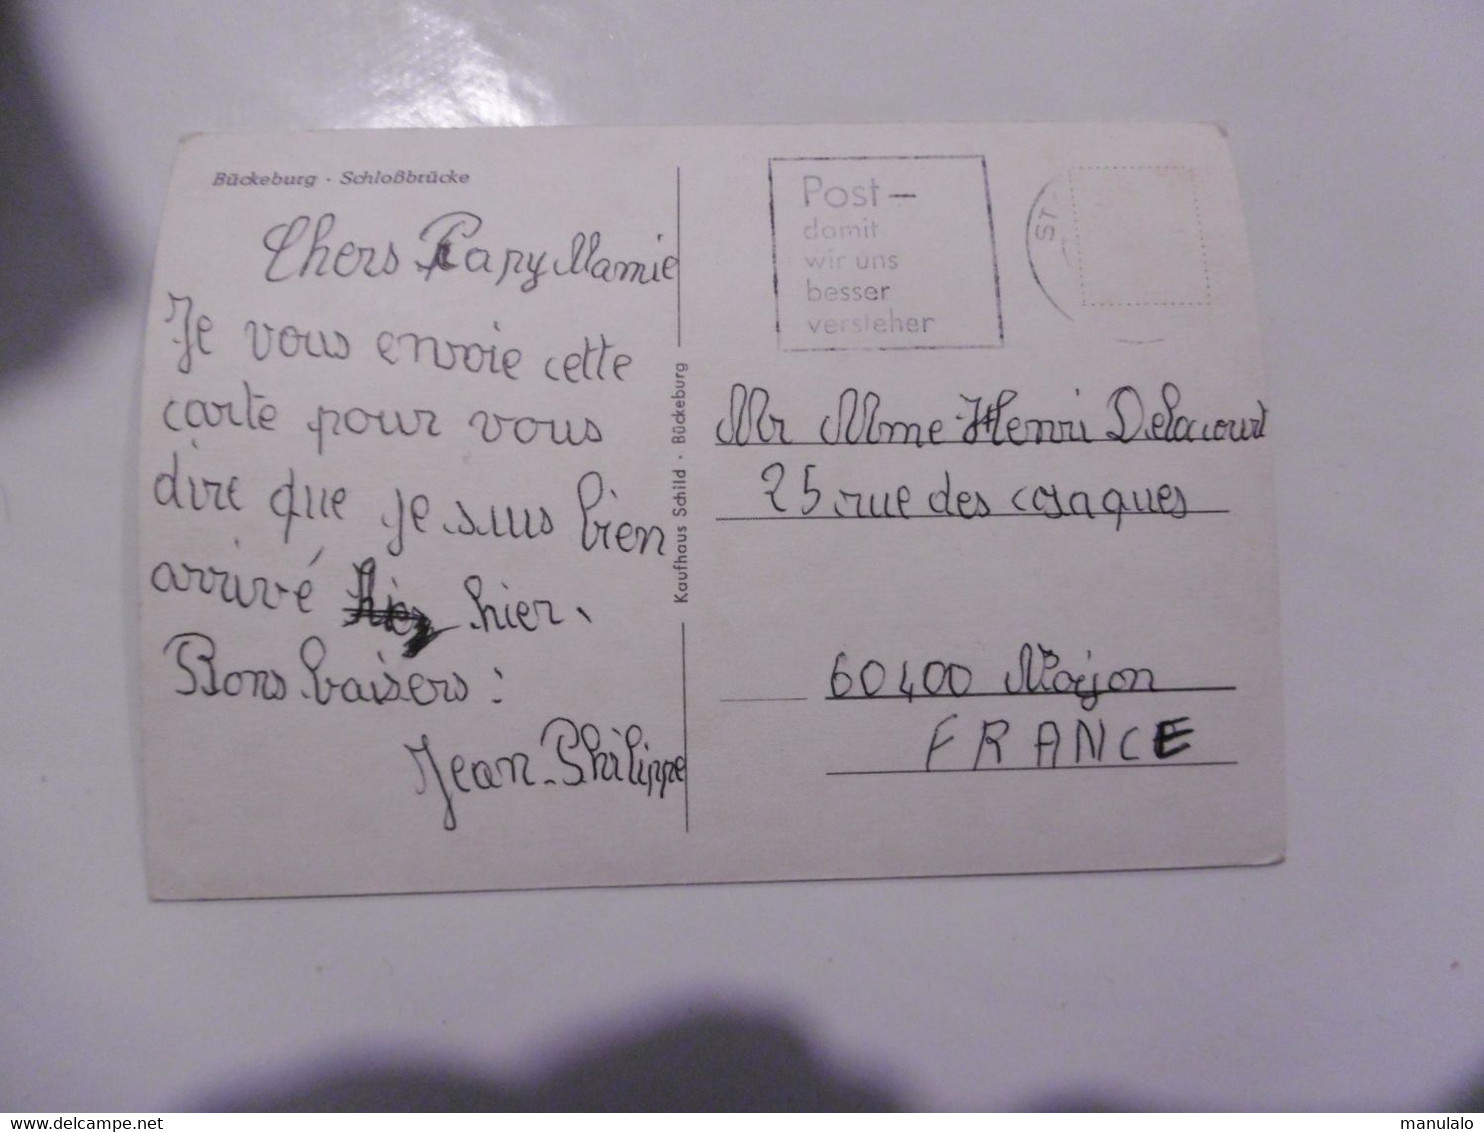 Bückeburg · Schloßbrücke
Chers Papy Mamie
Je vous envoie cette
carte pour vous
dire que je suis bien
arrivé hier.
Bons baisers :
Jean-Philippe
Kaufhaus Schild · Bückeburg
Post —
damit
wir uns
besser
verstehen
ST
Mr Mme Henri Delacourt
25 rue des cosaques
60400 Noyon
FRANCE
www.delcampe.net
manulalo